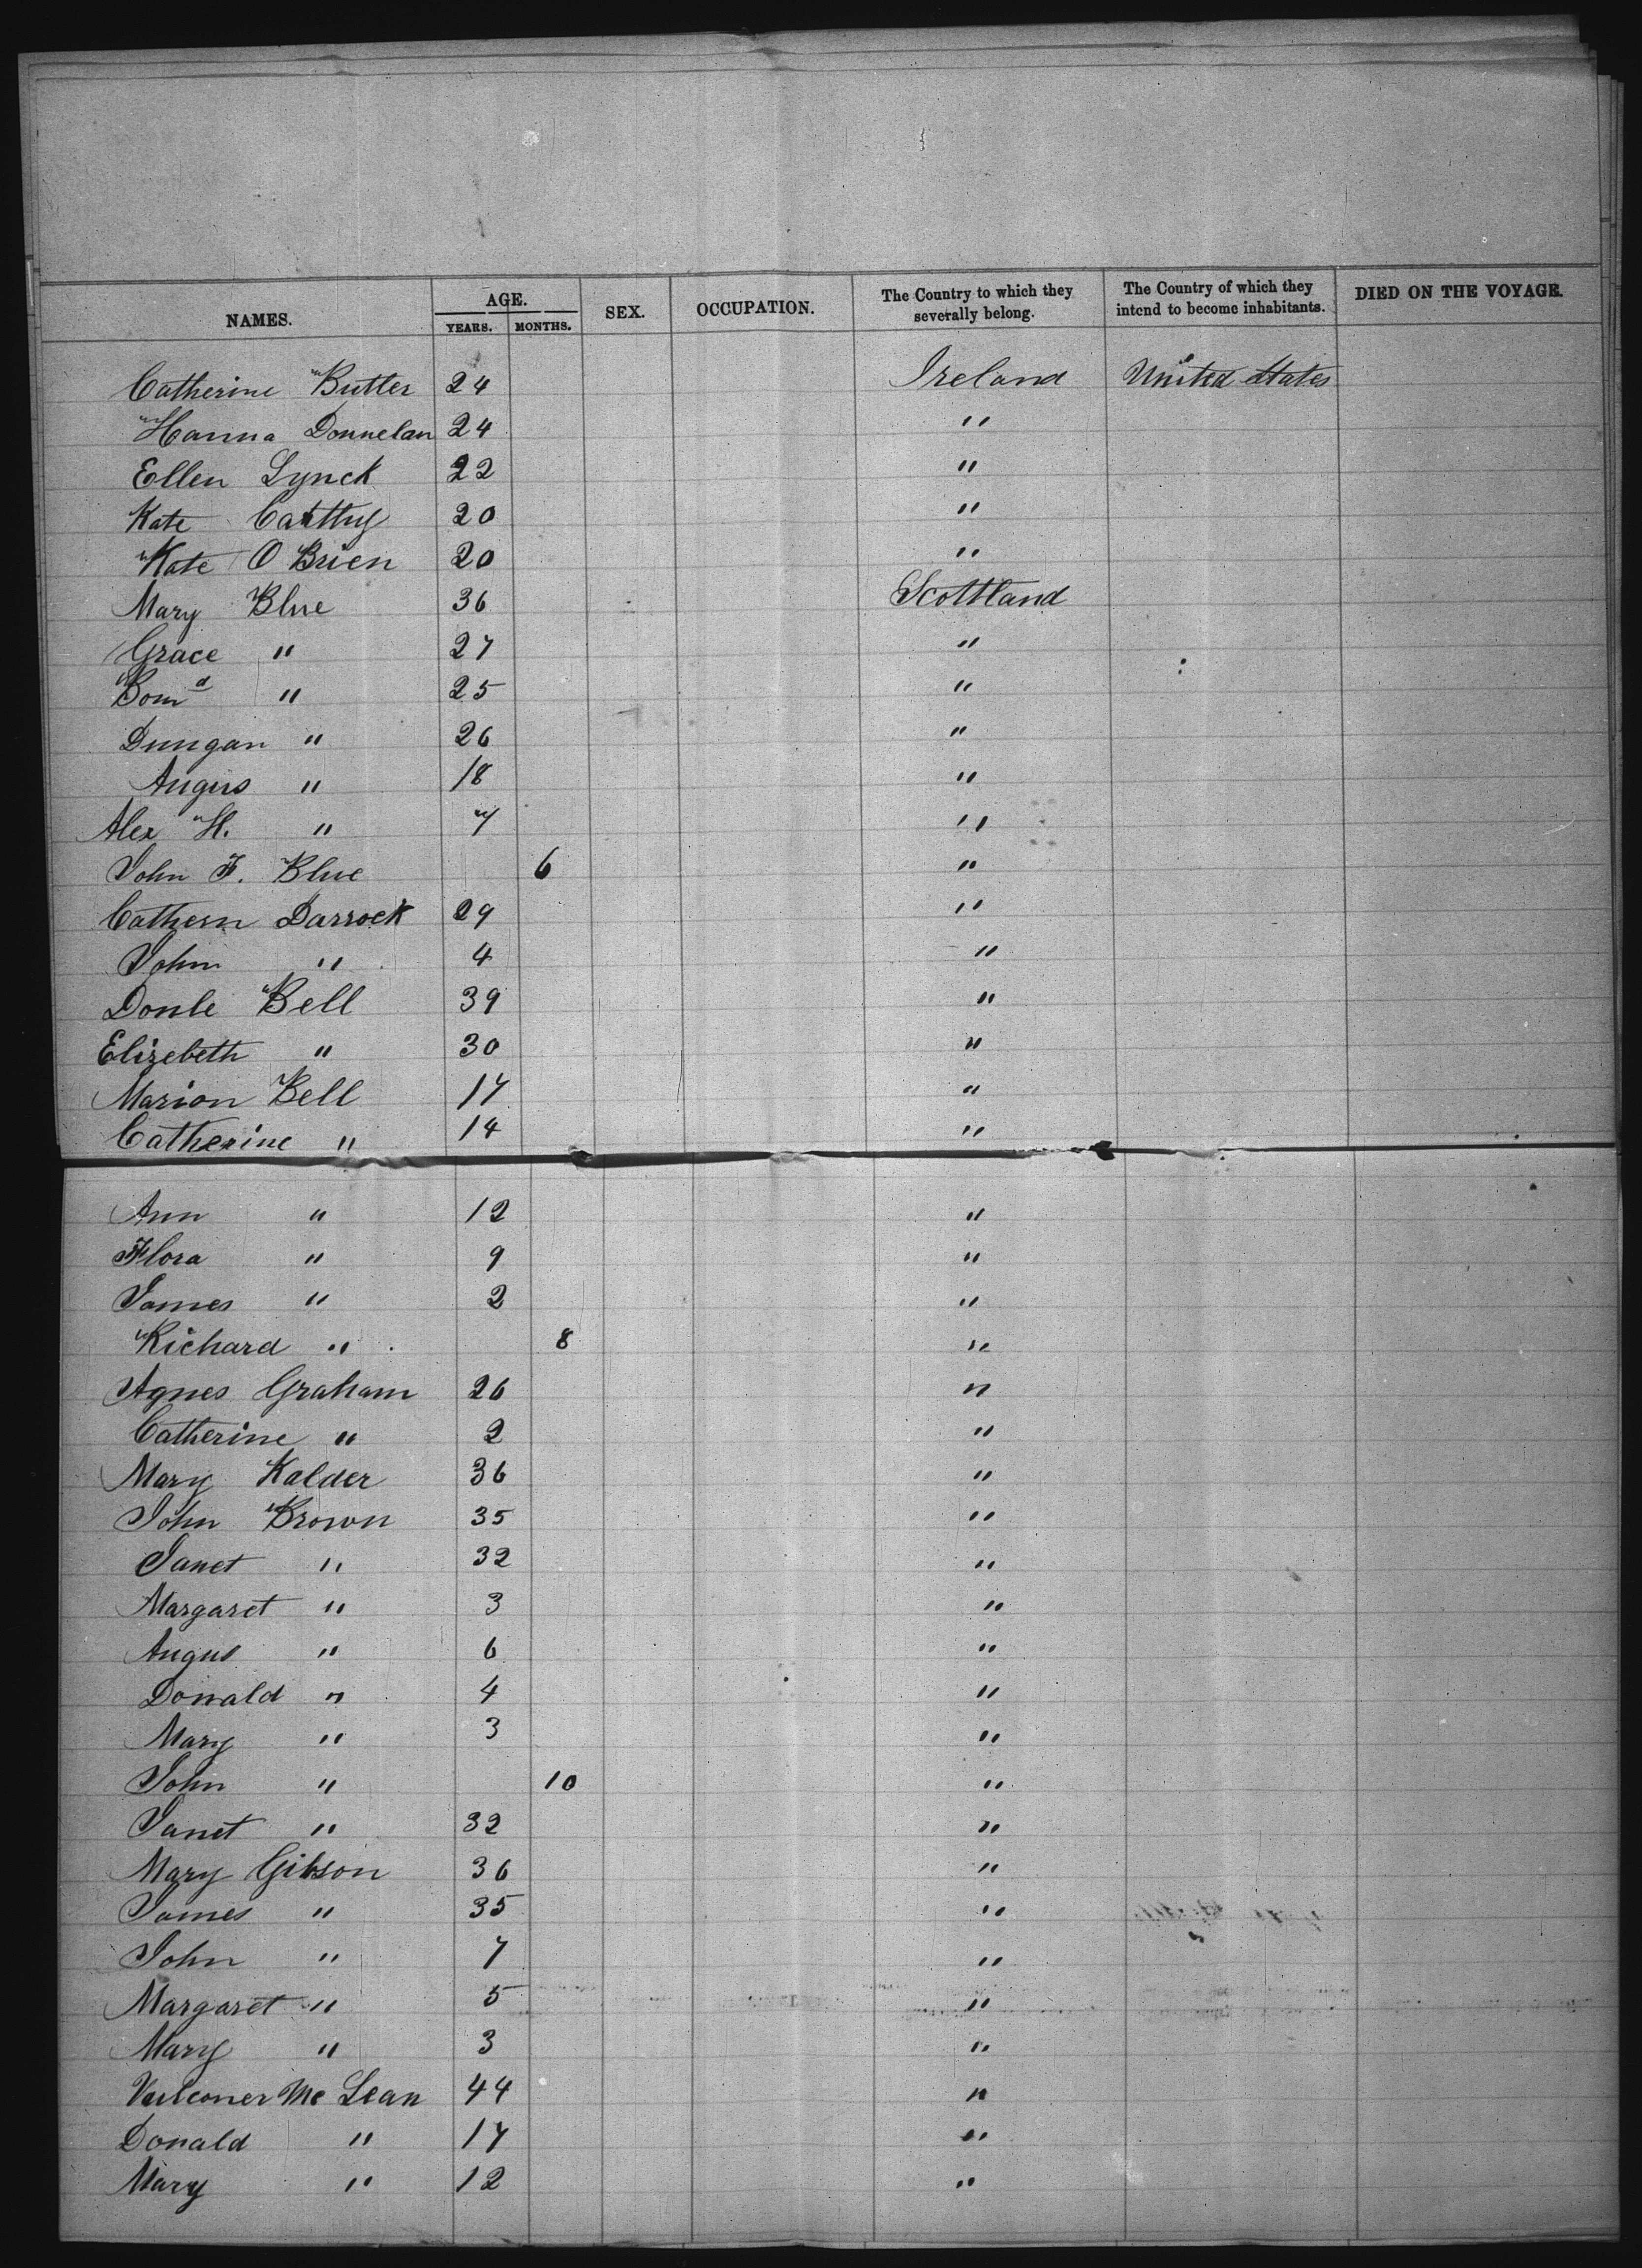 NAMES. AGE. YEARS. MONTHS. SEX. OCCUPATION. The Country to which they severally belong. The Country of which they intend to become inhabitants. DIED ON THE VOYAGE.
Catherine Butler 24 Ireland United States
Hanna Donnelan 24 "
Ellen Lynck 22 "
Kate Carthy 20 "
Kate O Brien 20 "
Mary Blue 36 Scottland
Grace " 27 "
Bom d " 25 "
Dungan " 26 "
Angus " 18 "
Alex H. " 7 "
John F. Blue 6 "
Cathern Darrock 29 "
John " 4 "
Donle Bell 39 "
Elizebeth " 30 "
Marion Bell 17 "
Catherine " 14 "
Ann " 12 "
Flora " 9 "
James " 2 "
Richard " 8 "
Agnes Graham 26 "
Catherine " 2 "
Mary Kalder 36 "
John Brown 35 "
Janet " 32 "
Margaret " 3 "
Angus " 6 "
Donald " 4 "
Mary " 3 "
John " 10 "
Janet " 32 "
Mary Gibson 36 "
James " 35 "
John " 7 "
Margaret " 5 "
Mary " 3 "
Mc Lean 44 "
Donald " 17 "
Mary " 12 "